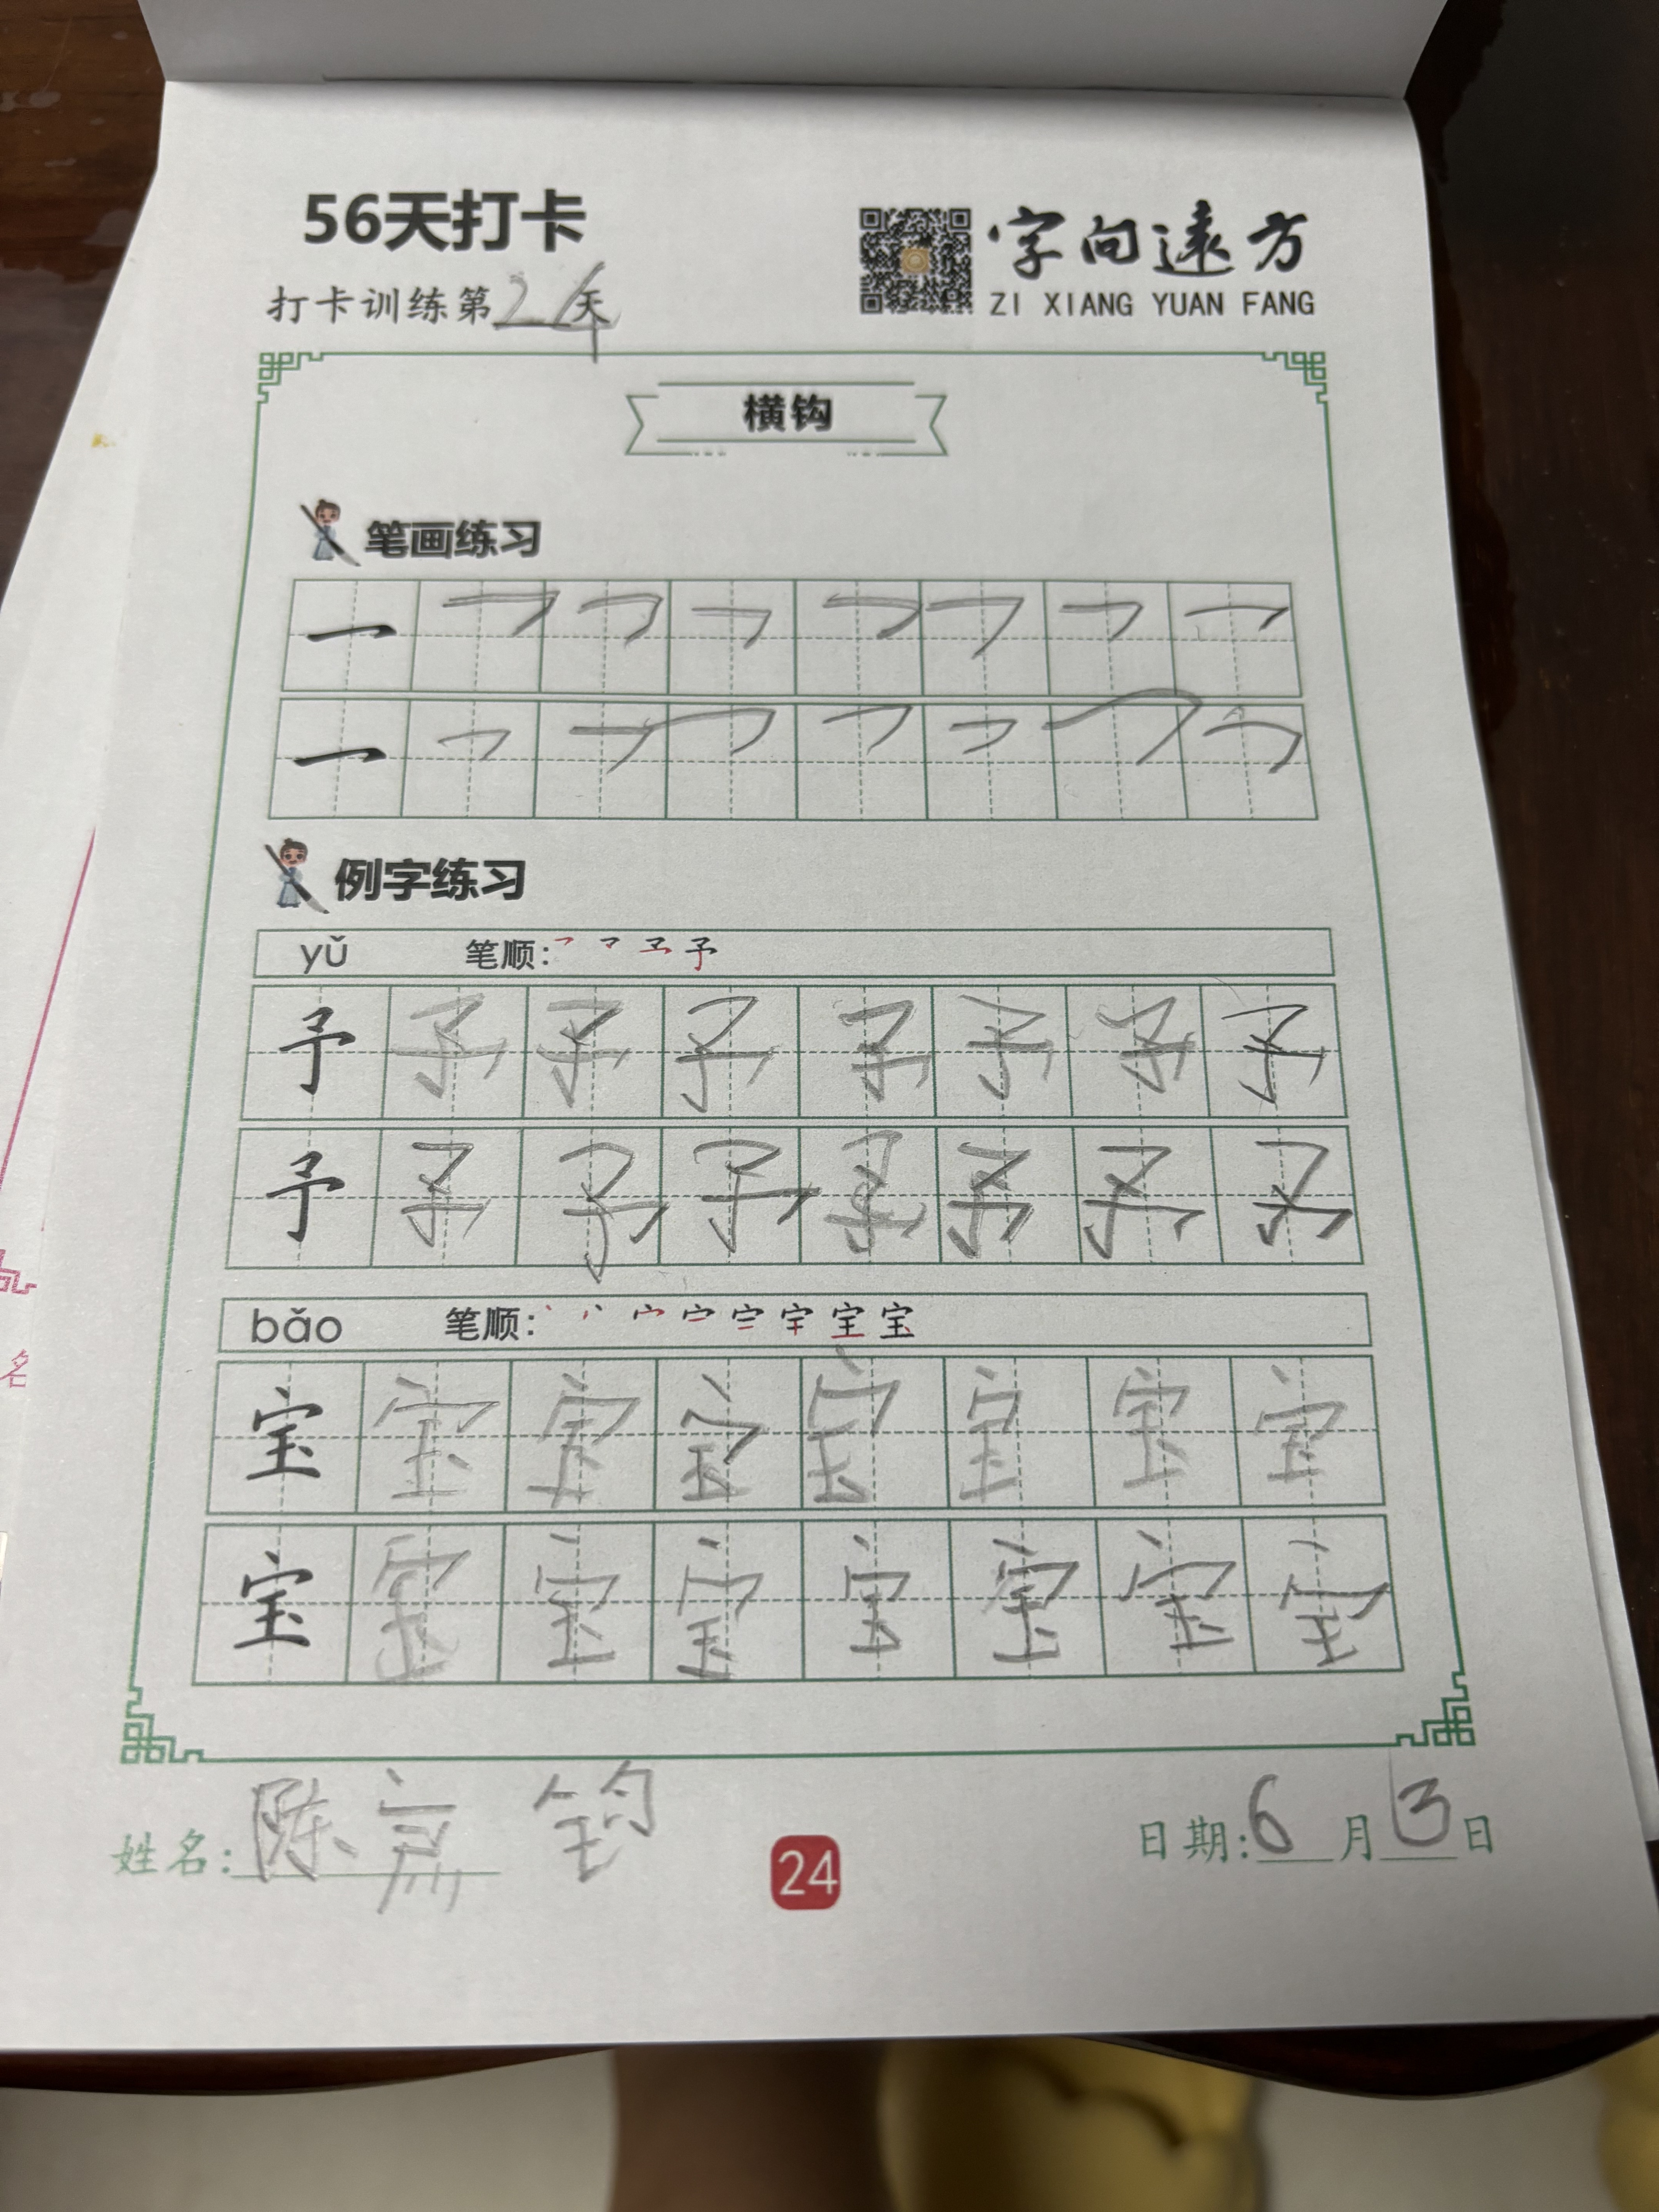 56天打卡
字向远方
ZI XIANG YUAN FANG
打卡训练第24天
横钩
笔画练习
例字练习
yǔ 笔顺:
予 予 予 予 予 予 予 予
予 予 予 予 予 予 予 予
bǎo 笔顺:
宝 宝 宝 宝 宝 宝 宝 宝
宝 宝 宝 宝 宝 宝 宝 宝
姓名:陈 钧
24
日期:6月13日
名